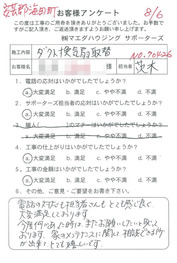 安芸郡海田町 お客様アンケート 8/6
この度は工事のご用命を頂きありがとうございました。お手数ですがご記入して、ご返送して頂きますようお願い致します。
㈱マエダハウジング サポーターズ
施工内容 ダクト換気扇取替 No.70426
様 担当者 茨木
1. 電話の対応はいかがでしたでしょうか?
a.大変満足 b.満足 c.やや不満 d.不満
2. サポーターズ担当者の対応はいかがでしたでしょうか?
a.大変満足 b.満足 c.やや不満 d.不満
a.大変満足 b.満足 c.やや不満 d.不満
4. 工事の仕上がりはいかがでしたでしょうか?
a.大変満足 b.満足 c.やや不満 d.不満
5. 工事の価格はいかがでしたでしょうか?
a.大変満足 b.満足 c.やや不満 d.不満
6. その他、ご意見・ご要望をお書き下さい。
電話の対応も担当者さんもとても感じ良く
大変満足しております
今後何かあった時は、またお願いしたいと思って
おります。家のメンテナンスに関して相談できる所
が出来、とても嬉しいです